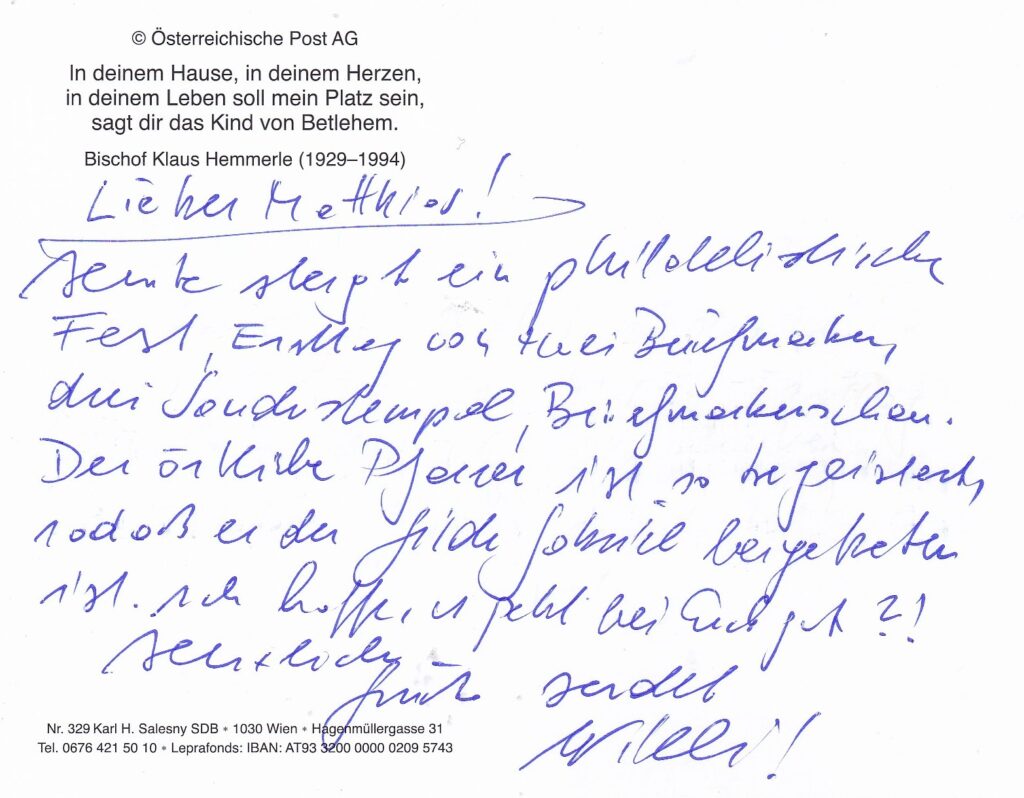 © Österreichische Post AG
In deinem Hause, in deinem Herzen,
in deinem Leben soll mein Platz sein,
sagt dir das Kind von Betlehem.
Bischof Klaus Hemmerle (1929–1994)
Lieber Matthias!
Heute steigt ein philatelistische
Fest, Ersttag von zwei Briefmarken,
drei Sonderstempel, Briefmarkenschau.
Der örtliche Pfarrer ist so begeistert,
sodaß er der Gilde Gabriel beigetreten
ist. Ich hoffe, es geht bei Euch gut?!
Herzliche
Grüße sendet
Willi!
Nr. 329 Karl H. Salesny SDB * 1030 Wien * Hagenmüllergasse 31
Tel. 0676 421 50 10 * Leprafonds: IBAN: AT93 3200 0000 0209 5743